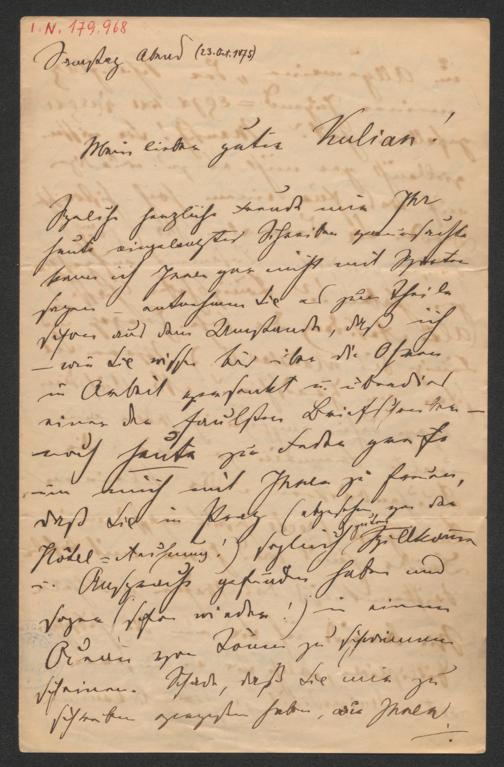 I. N. 179.968
Samstag Abend (23. Okt. 1875)
Mein lieber guter Kulian!
Welche herzliche Freude mir Ihr
heute eingelangtes Schreiben verursachte
kann ich Ihnen gar nicht mit Worten
sagen – entnehmen Sie es zum Theile
schon aus dem Umstande, daß ich
– wie Sie wissen bis über die Ohren
in Arbeit versenkt u. überdies
einer der faulsten Briefschreiber –
noch heute zur Feder greife
um mich mit Ihnen zu freuen,
daß Sie in Prag (abgesehen von der
Hôtel-Rechnung!) sogleich guten Willkomm
u. Ansprache gefunden haben und
sogar (schon wieder!) in einem
Ocean von Tönen zu schwimmen
scheinen. Schade, daß Sie mir zu
schreiben vergessen haben, wie Ihnen